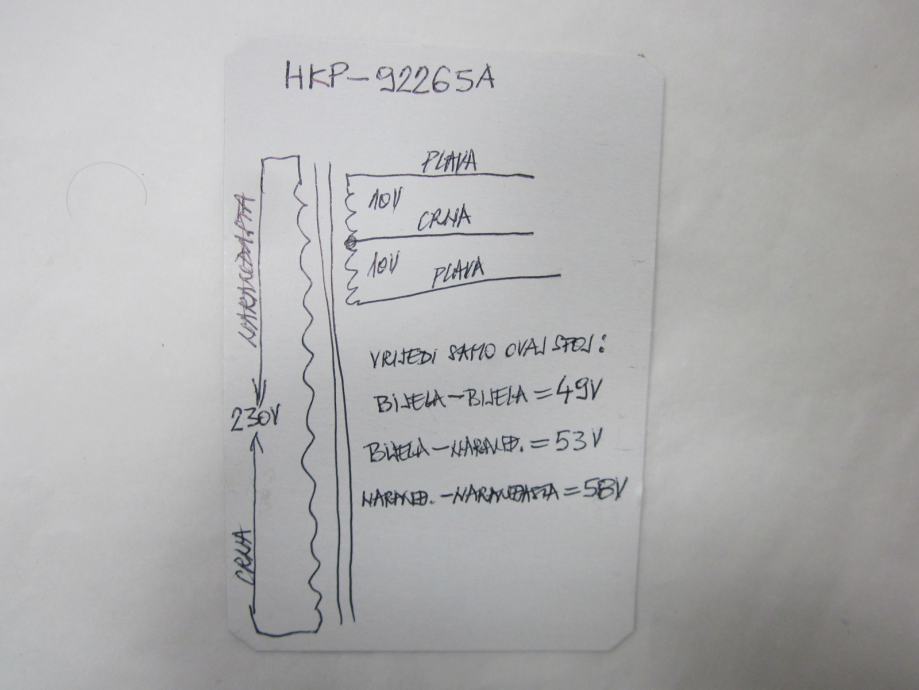 HKP-92265A
PLAVA
10V
CRNA
10V
PLAVA
NARANDASTA
230V
CRNA
VRIJEDI SAMO OVAJ SPOJ:
BIJELA-BIJELA=49V
BIJELA-NARAND.=53V
NARAND.-NARANDASTA=58V